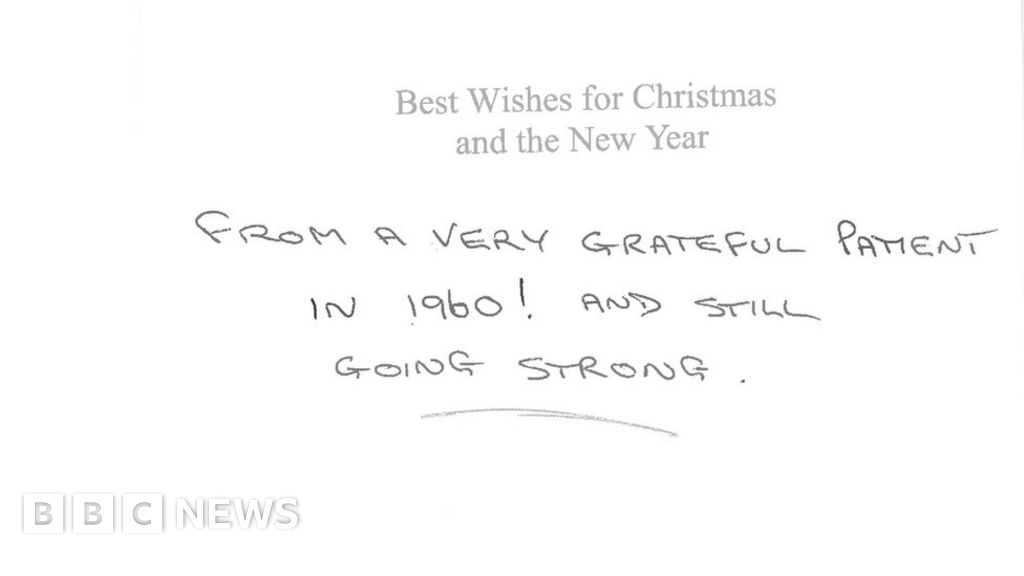 Best Wishes for Christmas
and the New Year
FROM A VERY GRATEFUL PATIENT
IN 1960! AND STILL
GOING STRONG.
BBC NEWS